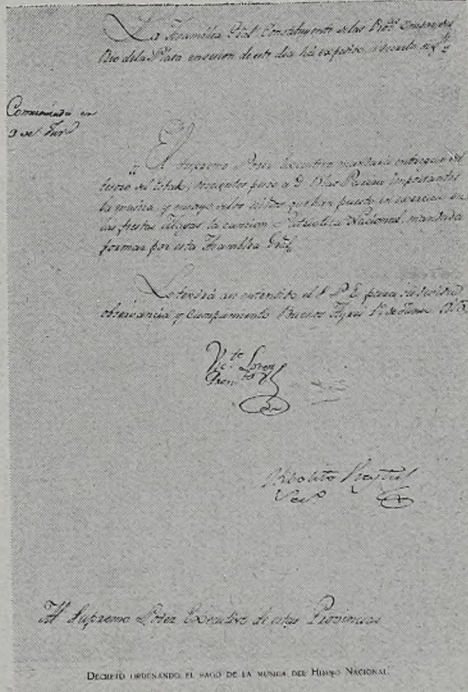 La Asamblea Gral Constituyente de las Provs Unidas del
Rio de la Plata en sesion de este dia há expedido, el Decreto sigte
Comunicado en
"El Supremo Poder Executivo mandará entregar del
tesoro del Estado, doscientos pesos a D. Blas Parera importantes
la musica, y ensayo de los niños que han puesto en exercicio en
las fiestas Mayas la cancion Patriotica Nacional, mandada
formar por esta Asamblea Gral
Lo tendrá así entendido el S. P. E. para su debida
observancia y cumplimiento Buenos Ayres 1º de Junio 1813.
Victe Lopez
Presidte
Hipolito Vieytes
Secº
Al Supremo Poder Executivo de estas Provincias
DECRETO ORDENANDO EL PAGO DE LA MUSICA DEL HIMNO NACIONAL.